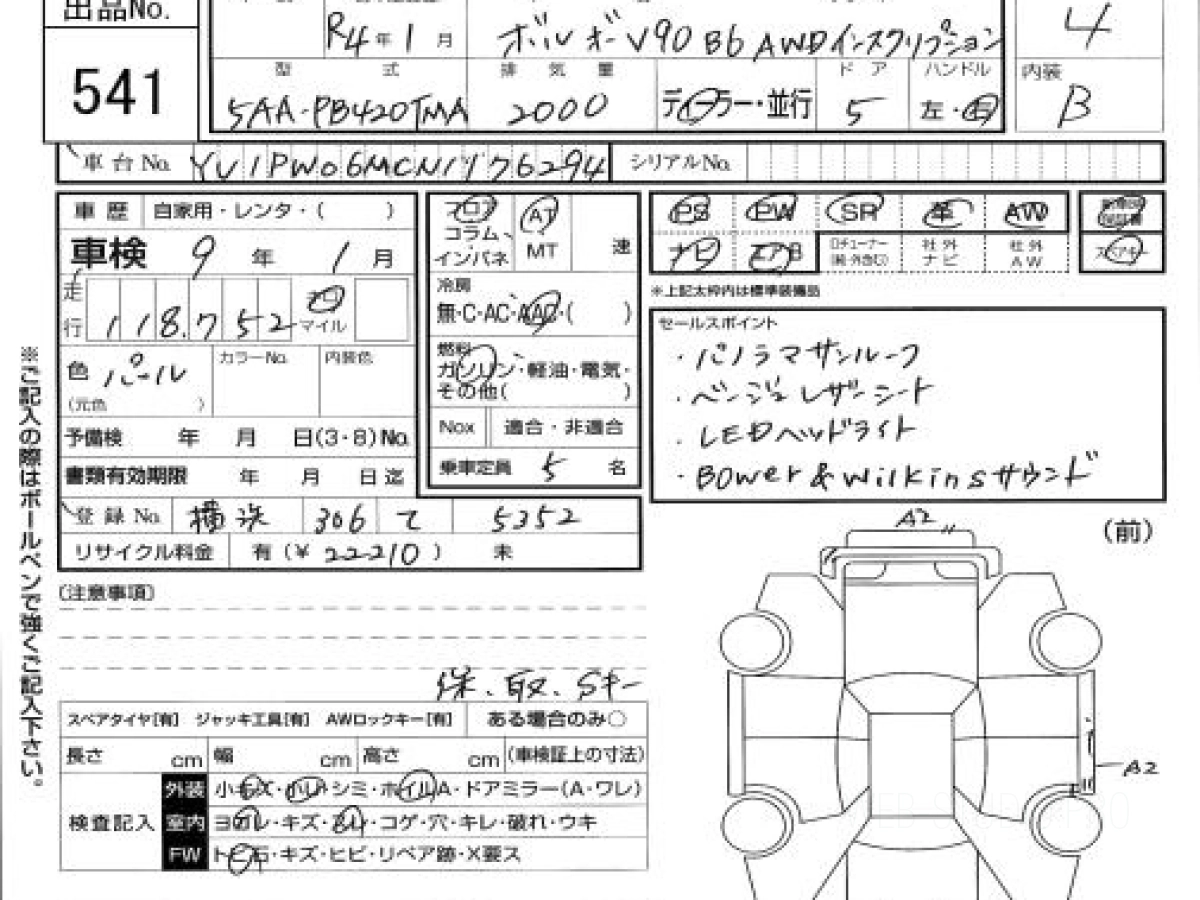 出品No.
541
R4年1月
ボルボーV90 B6 AWDインスクリプション
4
型式
排気量
ドア
ハンドル
内装
5AA-PB420TMA
2000
ディーラー・並行
5
左・右
B
車台No.
YV1PW06MCN1176294
シリアルNo.
車歴
自家用・レンタ・( )
車検
9年1月
走行
118.752
キロ
マイル
色 パール
(元色 )
カラーNo.
内装色
予備検 年 月 日(3・8)No.
書類有効期限 年 月 日迄
登録No.
横浜 306 て 5352
リサイクル料金
有(¥ 22210 ) 未
フロア
コラム
インパネ
AT
MT
速
冷房
無・C・AC・AAC・( )
燃料
ガソリン・軽油・電気・
その他( )
Nox
適合・非適合
乗車定員 5 名
PS
PW
SR
革
AW
ナビ
エアB
社外
ナビ
社外
AW
スペアキー
※上記太枠内は標準装備品
セールスポイント
・パノラマサンルーフ
・ベージュレザーシート
・LEDヘッドライト
・BOwer&Wilkinsサウンド
※ご記入の際はボールペンで強くご記入下さい。
(注意事項)
保.取.Sキー
スペアタイヤ[有] ジャッキ工具[有] AWロックキー[有]
ある場合のみ○
長さ cm 幅 cm 高さ cm (車検証上の寸法)
検査記入
外装 小キズ・小凹・シミ・ホイルA・ドアミラー(A・ワレ)
室内 ヨゴレ・キズ・スレ・コゲ・穴・キレ・破れ・ウキ
FW トビ石・キズ・ヒビ・リペア跡・X要ス
(前)
A2
A2